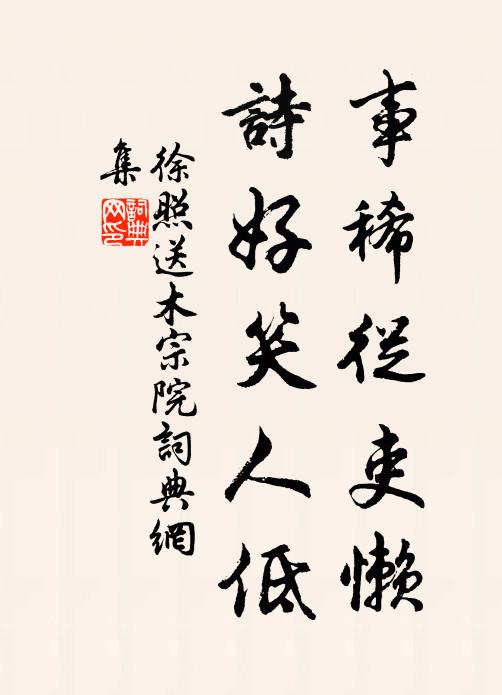 事稀從吏懶
詩好笑人低
徐照送木宗院詞典網
集
詞典网印